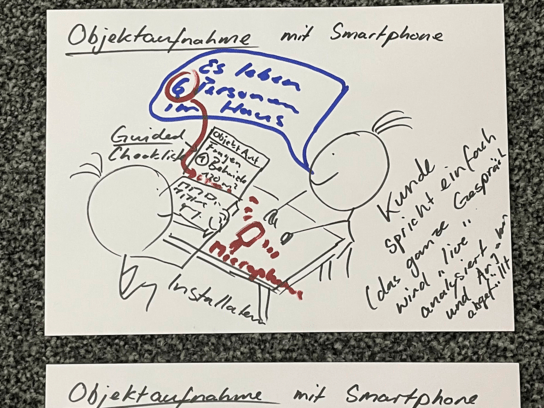 Objektaufnahme mit Smartphone
Es leben
6 Personen
im Haus
Guided
Checklist
Objekt Auf
Fragen
Gebäude
Microphone
Installateur
Kunde
spricht einfach
(das ganze Gespräch
wird "live"
analysiert
und
abgefüllt
Objektaufnahme mit Smartphone